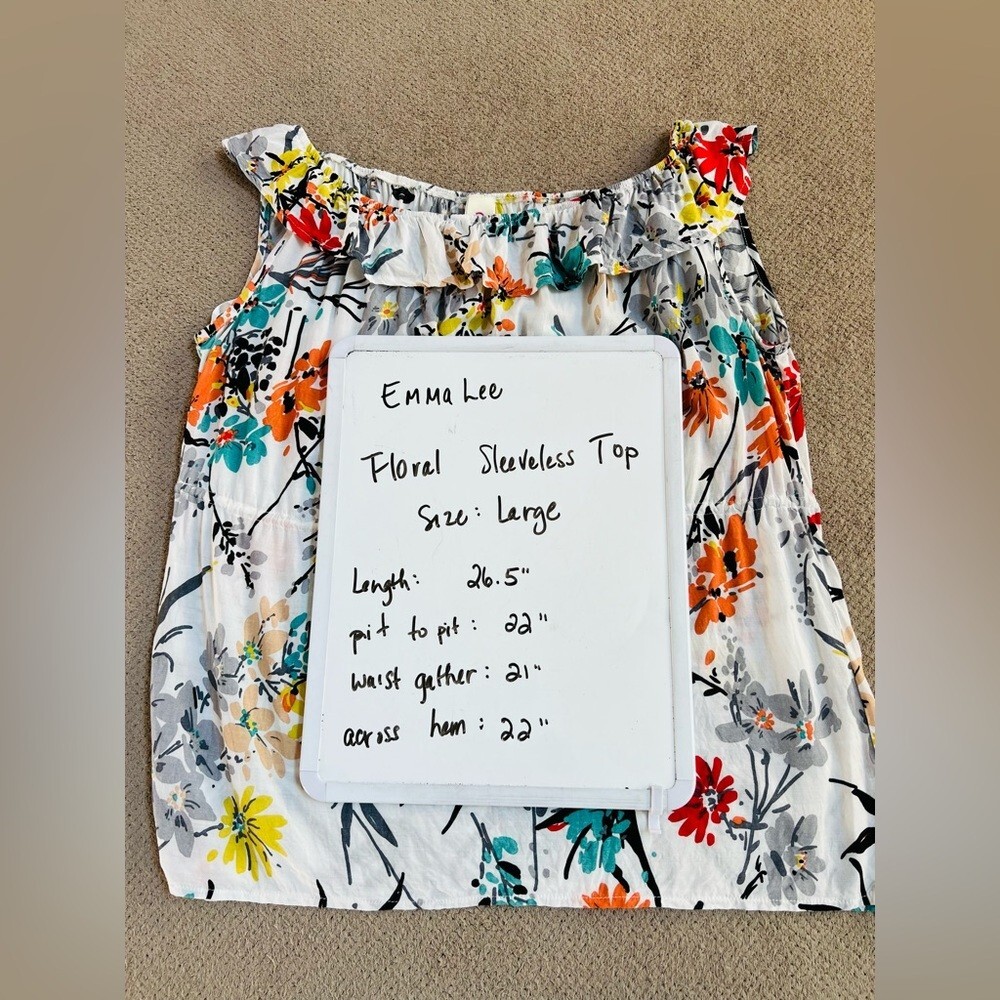 Emma Lee
Floral Sleeveless Top
Size: Large
Length: 26.5"
pit to pit: 22"
waist gather: 21"
across hem: 22"